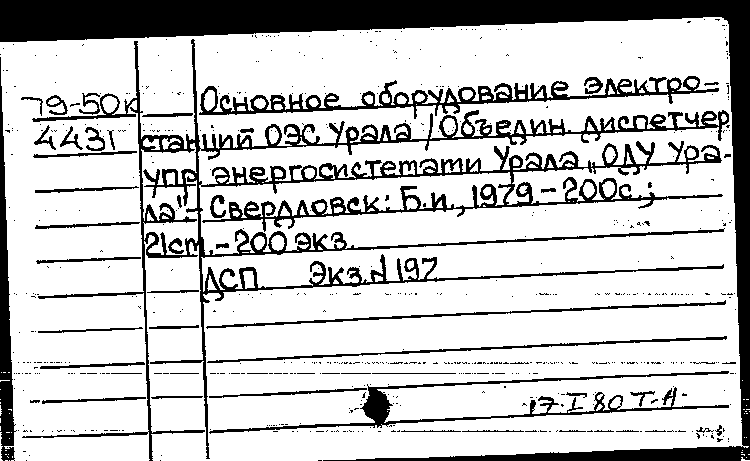 79-50к Основное оборудование электро=
4431 станций ОЭС Урала / Объедин. диспетчер
упр. энергосистемами Урала „ОДУ Ура-
ла".- Свердловск: Б.и., 1979.- 200с.;
21см.- 200 экз.
ДСП Экз.N 197
17.I 80 Т-А-